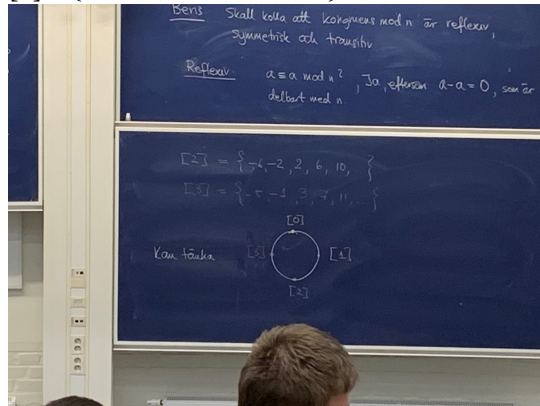 Bevis Skall kolla att kongruens mod n är reflexiv,
symmetrisk och transitiv
Reflexiv: a ≡ a mod n? , Ja, eftersom a-a=0, som är
delbart med n.
[2] = {-6, -2, 2, 6, 10, }
[3] = {-5, -1, 3, 7, 11, ...}
[0]
Kan tänka [3] [1]
[2]